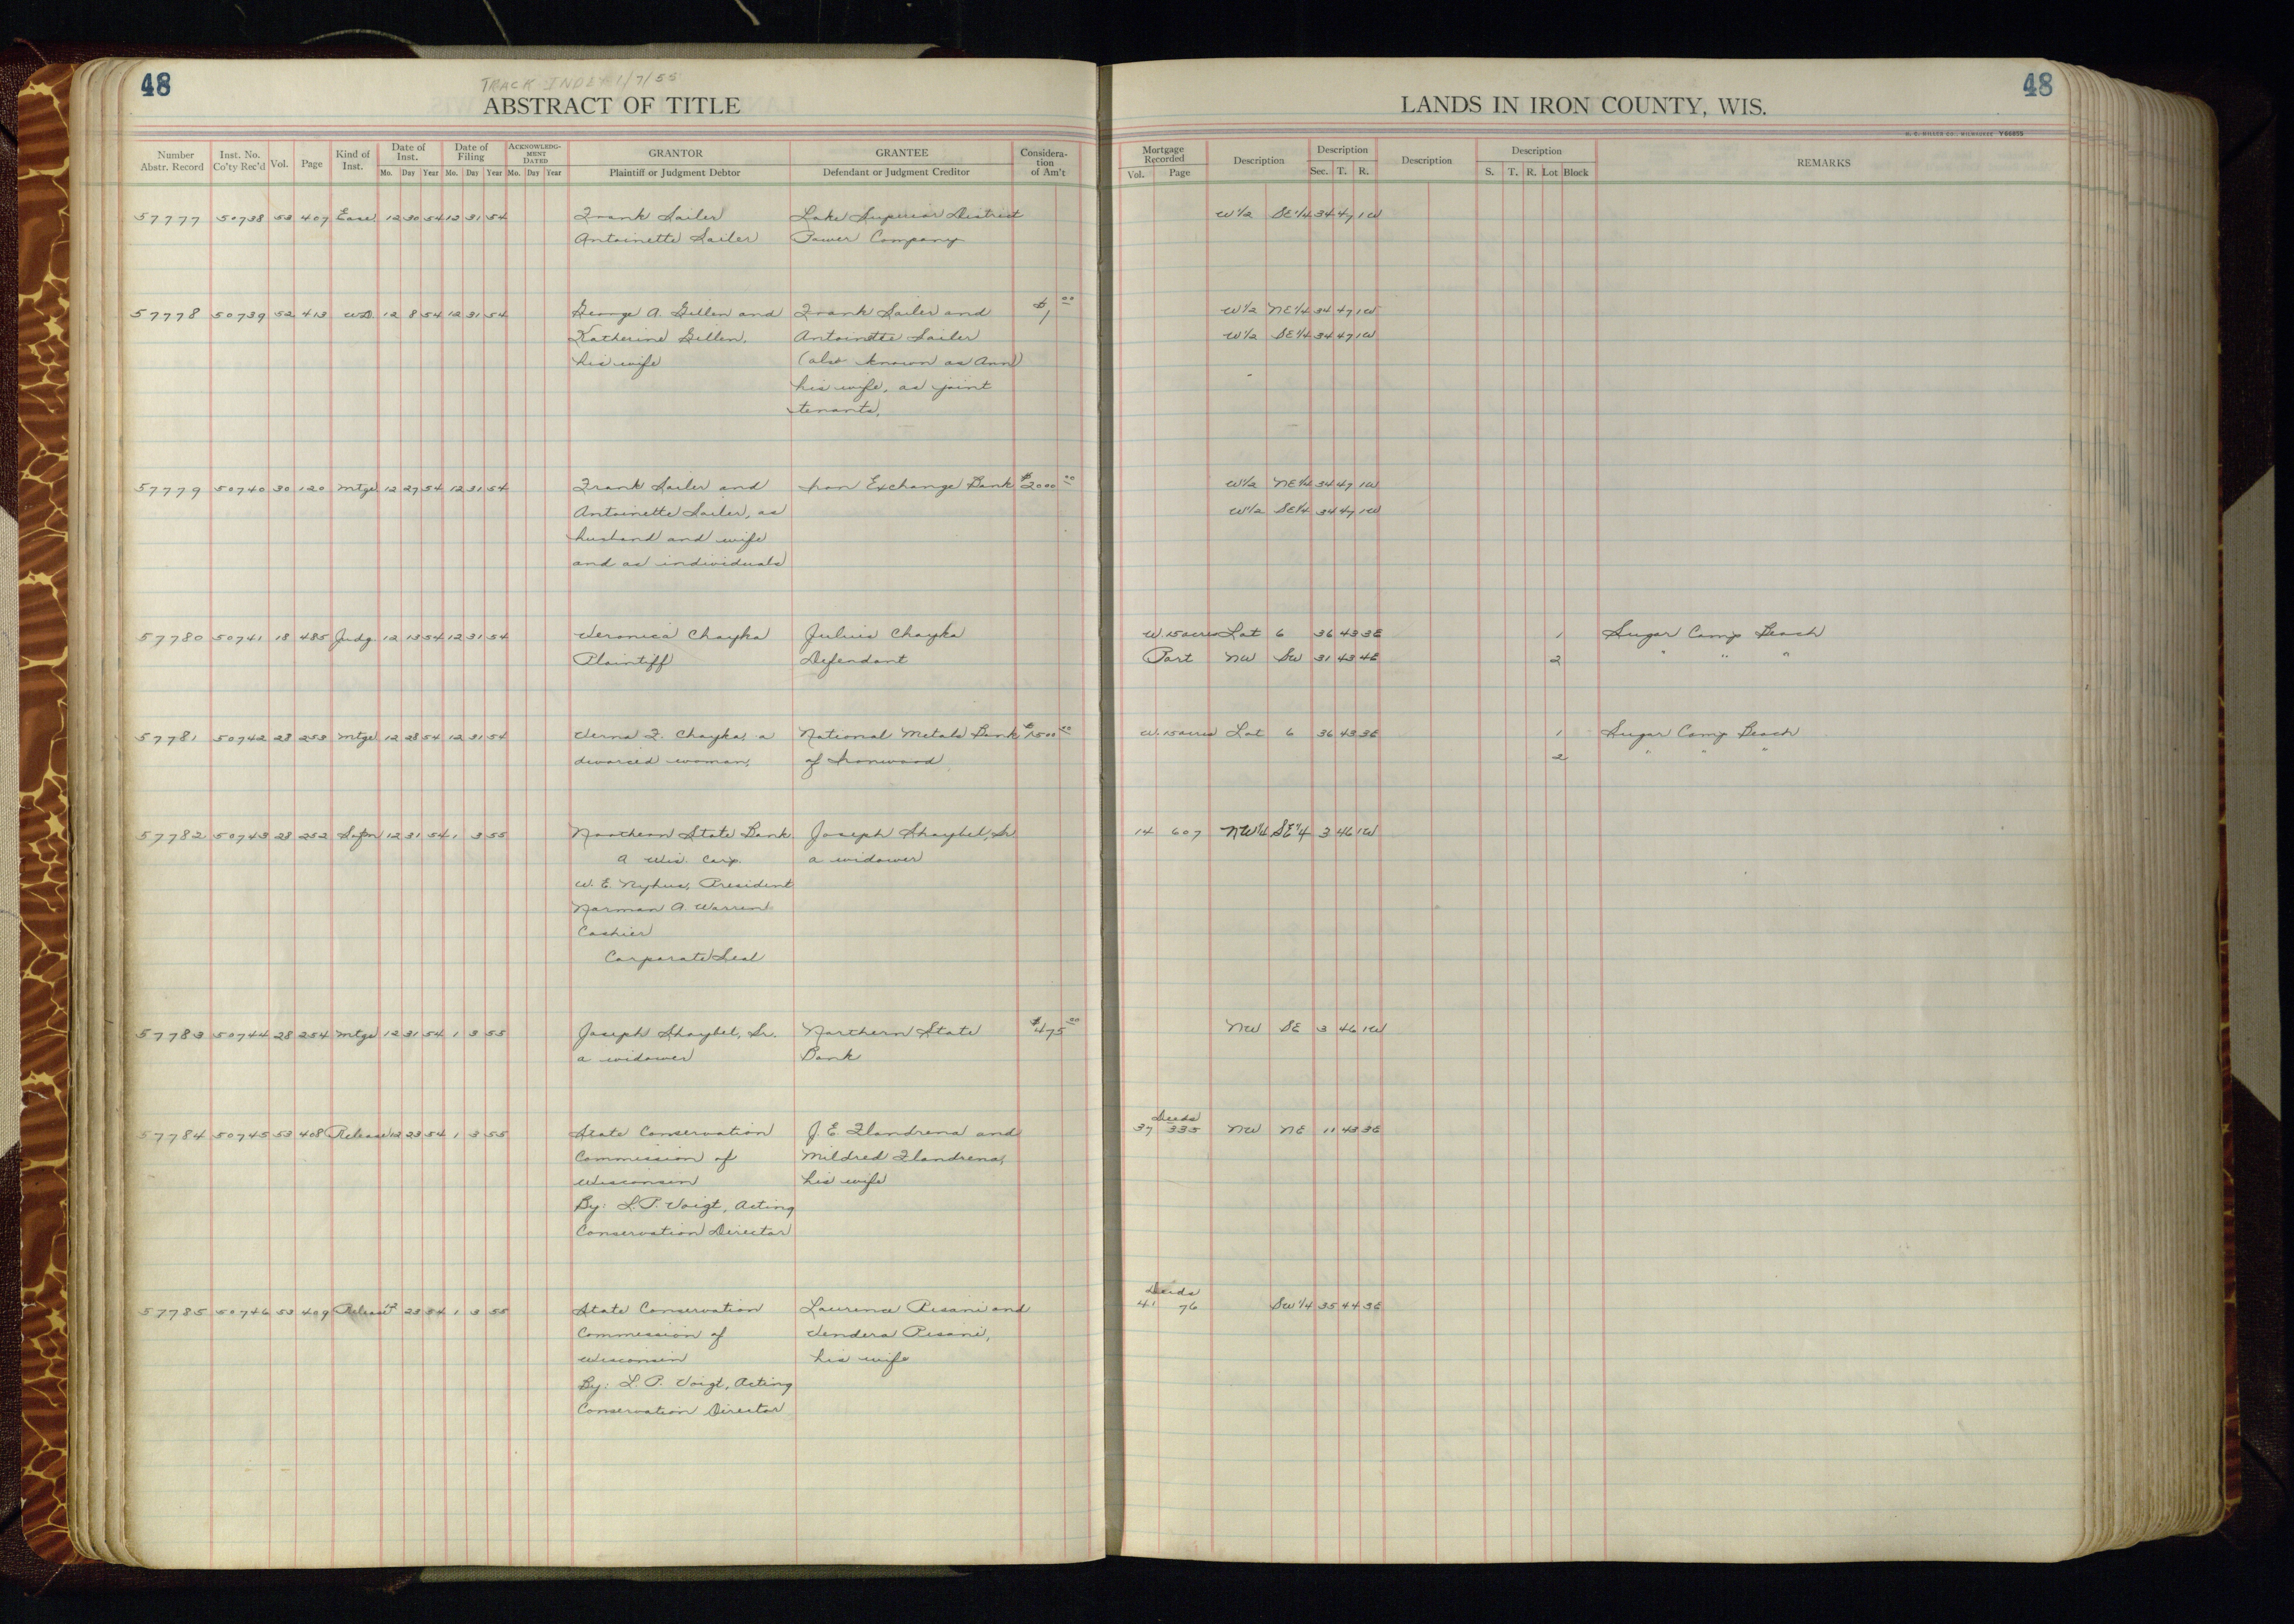 48
TRACK INDEX 1/7/55
ABSTRACT OF TITLE
Number Abstr. Record Inst. No. Co'ty Rec'd Vol. Page Kind of Inst. Date of Inst. Mo. Day Year Date of Filing Mo. Day Year ACKNOWLEDGMENT DATED Mo. Day Year GRANTOR Plaintiff or Judgment Debtor GRANTEE Defendant or Judgment Creditor Considera-tion of Am't
57777 50738 53 407 Ease 12 30 54 12 31 54 Frank Sailer Lake Superior District
Antoinette Sailer Power Company
57778 50739 52 413 WD 12 8 54 12 31 54 George A. Gillen and Frank Sailer and $1 00
Katherine Gillen, Antoinette Sailer
his wife (also known as Ann)
his wife, as joint
tenants,
57779 50740 30 120 Mtge 12 27 54 12 31 54 Frank Sailer and Iron Exchange Bank $2000 00
Antoinette Sailer, as
husband and wife
and as individuals
57780 50741 18 485 Judg. 12 13 54 12 31 54 Veronica Chayka Julius Chayka
Plaintiff Defendant
57781 50742 28 253 Mtge 12 28 54 12 31 54 Verna F. Chayka, a National Metals Bank $1500 00
divorced woman, of Ironwood
57782 50743 28 252 12 31 54 1 3 55 Northern State Bank Joseph Shaybel, Sr.
A Wis. Corp. a widower
W. E. Nyhus, President
Norman A. Warren
Cashier
Corporate Seal
57783 50744 28 254 Mtge 12 31 54 1 3 55 Joseph Shaybel, Sr. Northern State $475 00
a widower Bank
57784 50745 53 408 Release 12 23 54 1 3 55 State Conservation J. E. Flandrena and
Commission of Mildred Flandrena,
Wisconsin his wife
By: L. P. Voigt, Acting
Conservation Director
57785 50746 53 409 Release 12 23 54 1 3 55 State Conservation Laurence Pisani and
Commission of Vendera Pisani,
Wisconsin his wife
By: L. P. Voigt, Acting
Conservation Director
48
LANDS IN IRON COUNTY, WIS.
H. C. MILLER CO., MILWAUKEE Y66855
Mortgage Recorded Vol. Page Description Description Sec. T. R. Description Description S. T. R. Lot Block REMARKS
W 1/2 SE 1/4 34 47 1W
W 1/2 NE 1/4 34 47 1W
W 1/2 SE 1/4 34 47 1W
W 1/2 NE 1/4 34 47 1W
W 1/2 SE 1/4 34 47 1W
W. 15 acres Lot 6 36 43 3E 1 Sugar Camp Beach
Part NW SW 31 43 4E 2 " " "
W. 15 acres Lot 6 36 43 3E 1 Sugar Camp Beach
2 " " "
14 607 NW 1/4 SE 1/4 3 46 1W
NW SE 3 46 1W
Deeds
37 335 NW NE 11 43 3E
Deeds
41 76 SW 1/4 35 44 3E